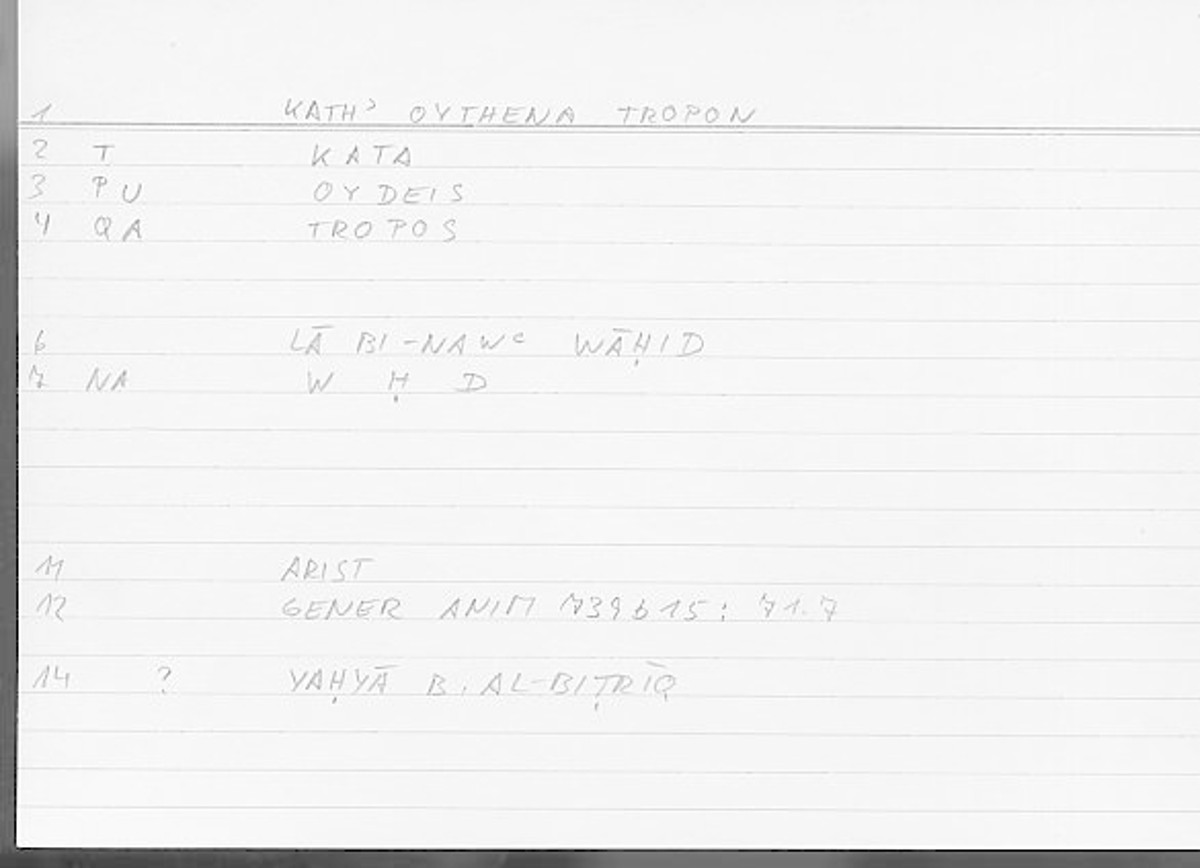 1 KATHʾ OYTHENA TROPON
2 T KATA
3 PU OYDEIS
4 QA TROPOS
6 LĀ BI-NAWʿ WĀḤID
7 NA W Ḥ D
11 ARIST
12 GENER ANIM 739b15: 71.7
14 ? YAḤYĀ B. AL-BIṬRĪQ